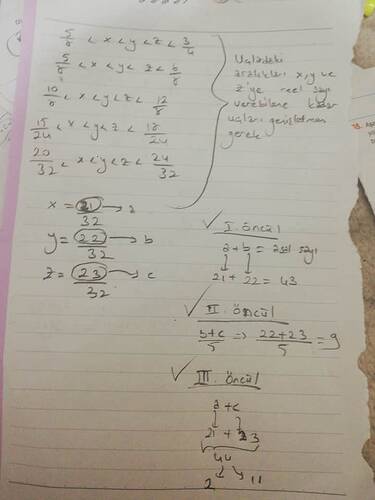 5/8 < x < y < z < 3/4
5/8 < x < y < z < 6/8
10/8 < x < y < z < 12/8
15/24 < x < y < z < 18/24
20/32 < x < y < z < 24/32
Uçlardaki
aralıkları x, y ve
z'ye reel sayı
verebilene kadar
uçları genişletmen
gerek
x = 21/32 → a
y = 22/32 → b
z = 23/32 → c
✓ I. Öncül
a+b = asal sayı
21 + 22 = 43
✓ II. Öncül
b+c/5 ⇒ 22+23/5 = 9
✓ III. Öncül
a + c
21 + 23
44
2 11